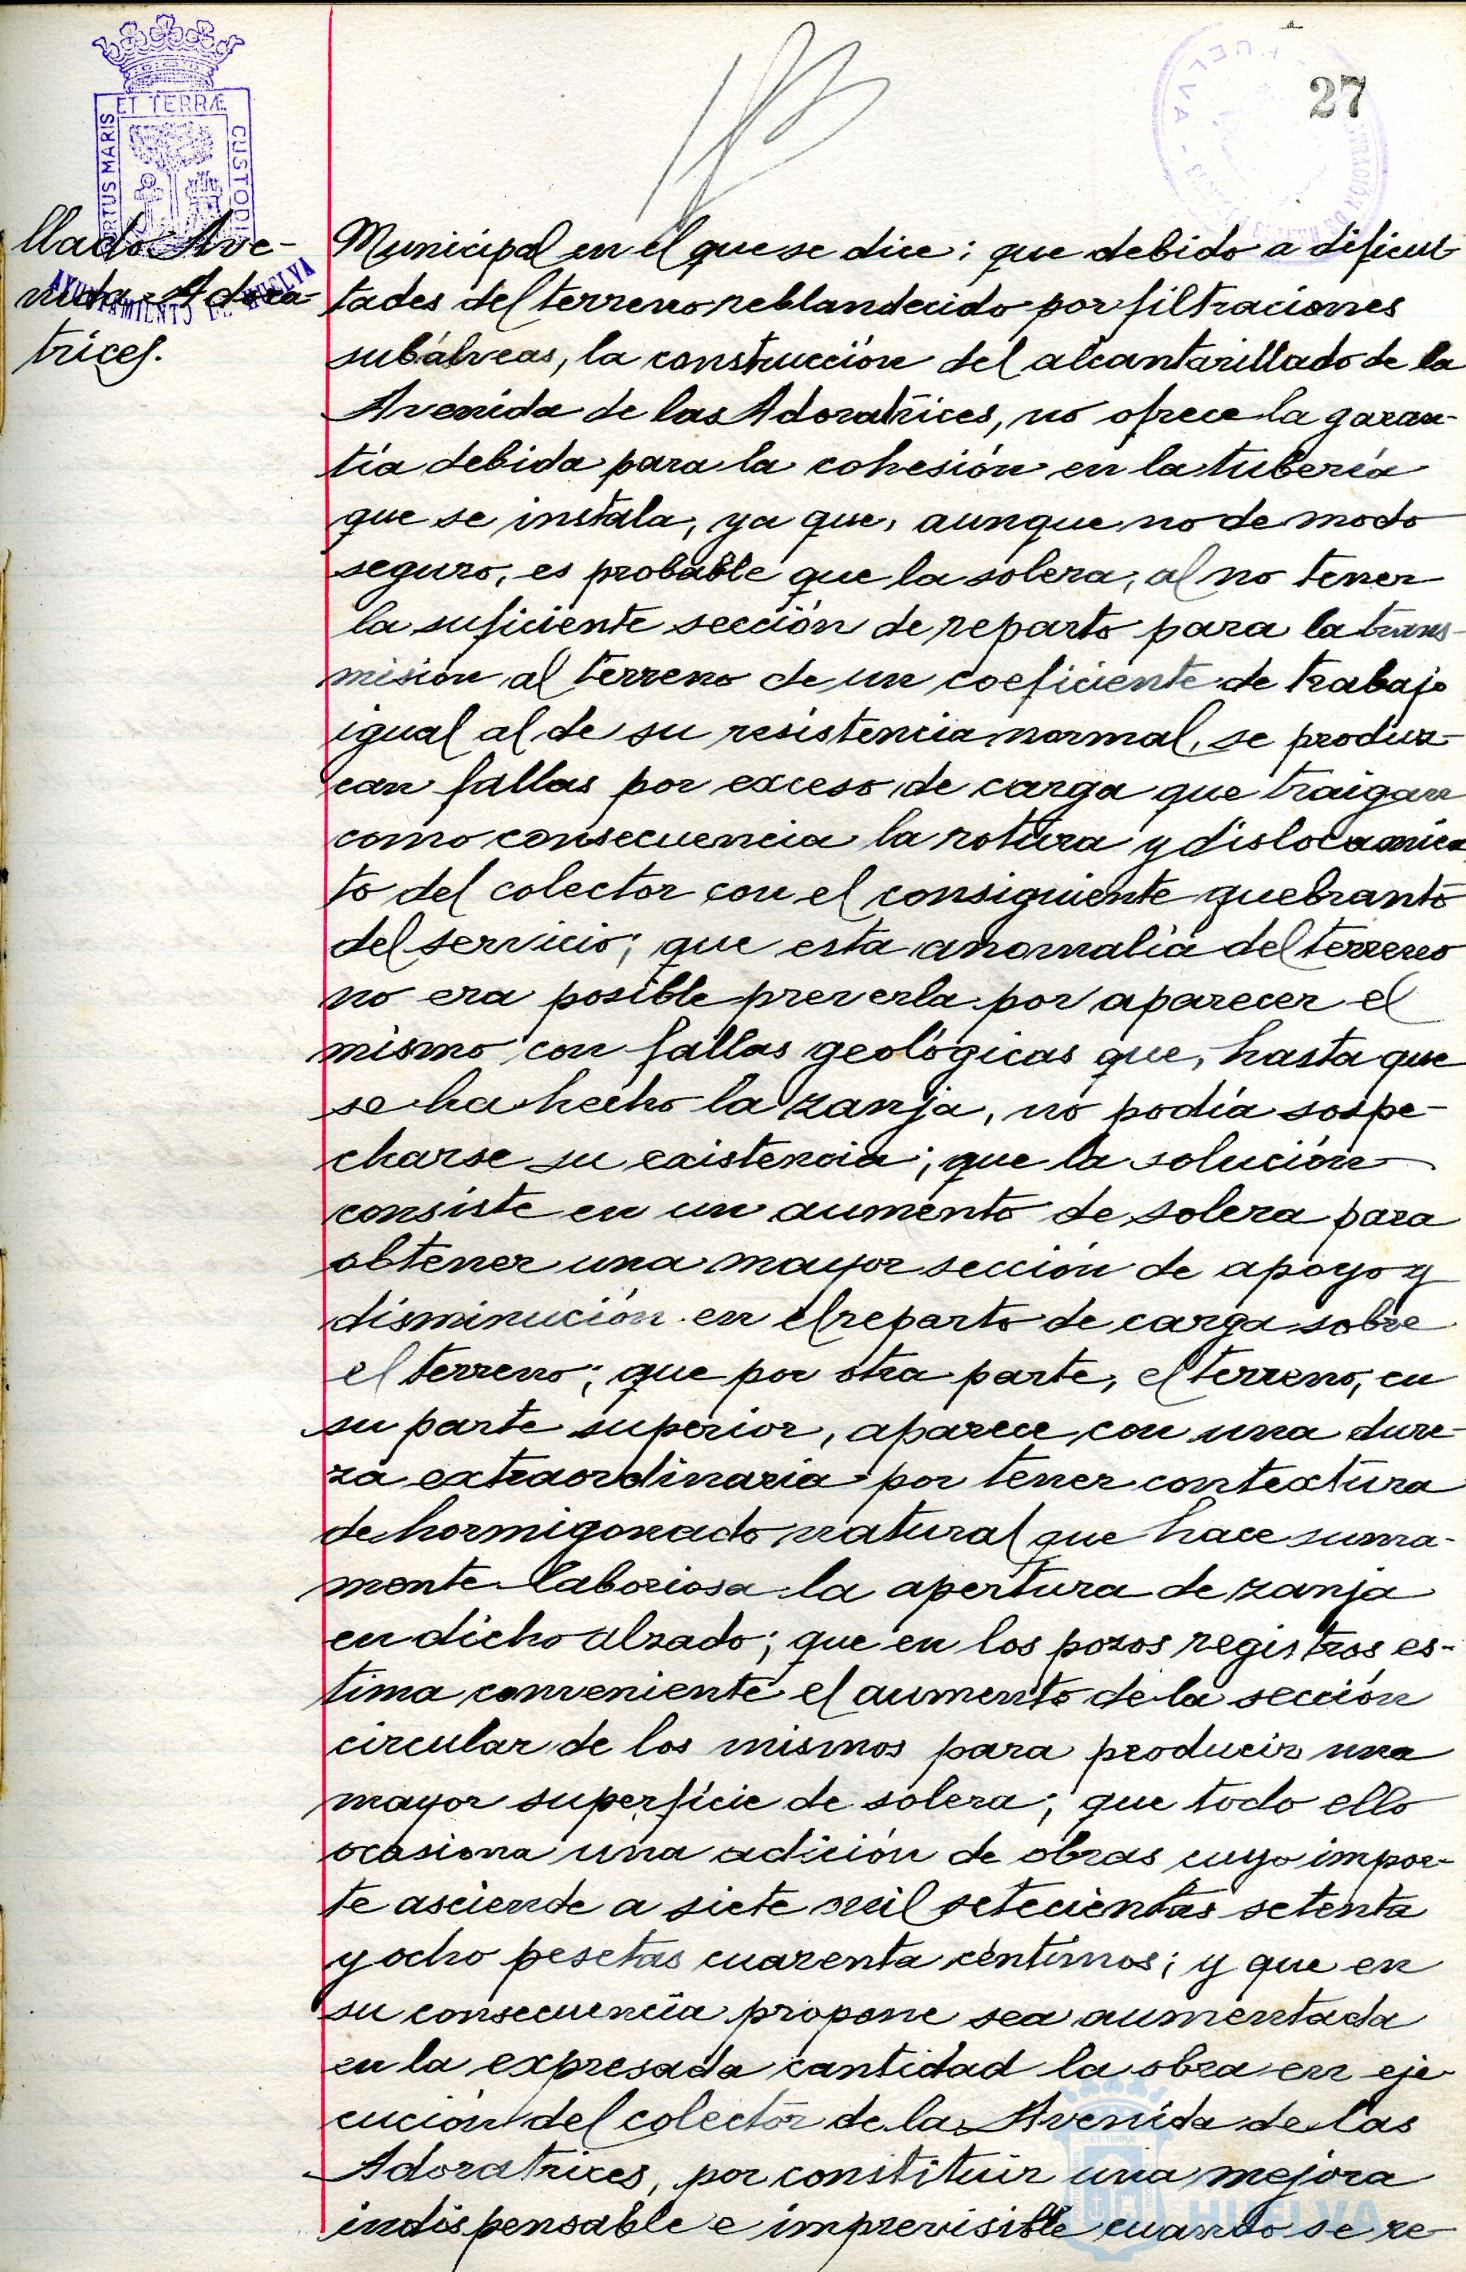 27
ET TERRÆ
PORTUS MARIS
CUSTODIA
AYUNTAMIENTO DE HUELVA
HUELVA
llado Ave-
nida Adora
trices.
Municipal en el que se dice: que debido a dificul
tades del terreno reblandecido por filtraciones
subálveas, la construcción del alcantarillado de la
Avenida de las Adoratrices, no ofrece la garan-
tía debida para la cohesión en la tubería
que se instala, ya que, aunque no de modo
seguro, es probable que la solera, al no tener
la suficiente sección de reparto para la trans-
misión al terreno de un coeficiente de trabajo
igual al de su resistencia normal, se produz-
can fallas por exceso de carga que traigan
como consecuencia la rotura y dislocamien
to del colector con el consiguiente quebranto
del servicio; que esta anomalía del terreno
no era posible preverla por aparecer el
mismo con fallas geológicas que, hasta que
se ha hecho la zanja, no podía sospe-
charse su existencia; que la solución
consiste en un aumento de solera para
obtener una mayor sección de apoyo y
disminución en el reparto de carga sobre
el terreno; que por otra parte, el terreno, en
su parte superior, aparece con una dure-
za extraordinaria por tener contextura
de hormigonado natural que hace suma-
mente laboriosa la apertura de zanja
en dicho alzado; que en los pozos registros es-
tima conveniente el aumento de la sección
circular de los mismos para producir una
mayor superficie de solera; que todo ello
ocasiona una adición de obras cuyo impor-
te asciende a siete mil setecientas setenta
y ocho pesetas cuarenta céntimos; y que en
su consecuencia propone sea aumentada
en la expresada cantidad la obra en eje-
cución del colector de la Avenida de las
Adoratrices, por constituir una mejora
indispensable e imprevisible cuando se re-
HUELVA